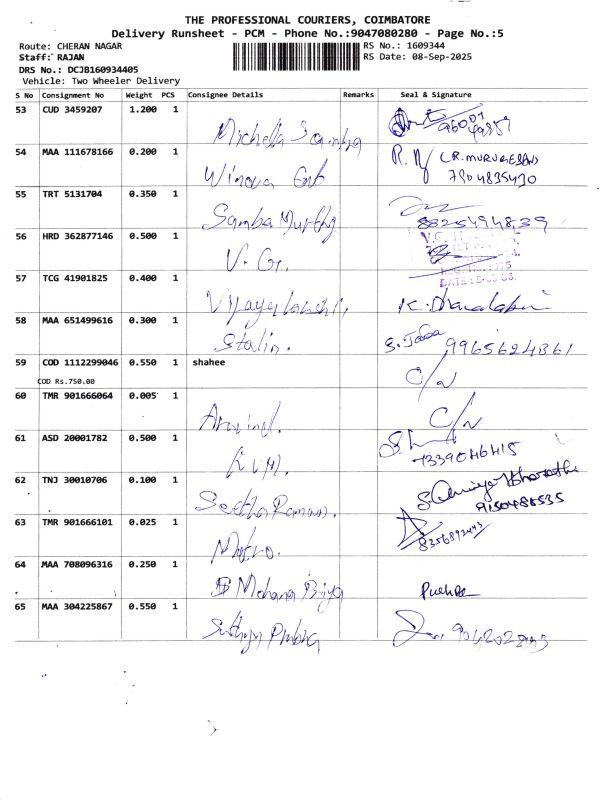 THE PROFESSIONAL COURIERS, COIMBATORE
Delivery Runsheet - PCM - Phone No.:9047080280 - Page No.:5
Route: CHERAN NAGAR RS No.: 1609344
Staff: RAJAN RS Date: 08-Sep-2025
DRS No.: DCJB160934405
Vehicle: Two Wheeler Delivery
S No Consignment No Weight PCS Consignee Details Remarks Seal & Signature
53 CUD 3459207 1.200 1
54 MAA 111678166 0.200 1 (R.MURUGESAN)
7904835430
55 TRT 5131704 0.350 1 Samba Murthy
8825494839
56 HRD 362877146 0.500 1 V. G.
57 TCG 41901825 0.400 1
58 MAA 651499616 0.300 1 Stalin. 9965624361
59 COD 1112299046 0.550 1 shahee C/N
COD Rs.750.00
60 TMR 901666064 0.005 1 C/N
61 ASD 20001782 0.500 1 7339046415
62 TNJ 30010706 0.100 1 Seetha Raman. 9150488535
63 TMR 901666101 0.025 1 8356892443
64 MAA 708096316 0.250 1 Mohana Priya
65 MAA 304225867 0.550 1